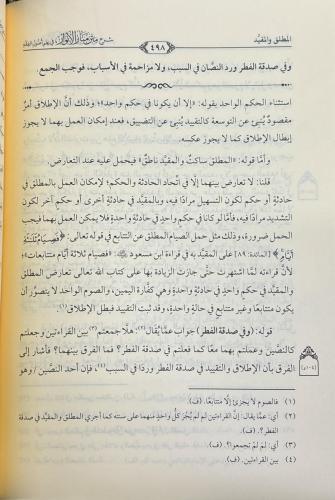 المطلق والمقيَّد
٤٩٨
شرح متن منار الأنوار في علم أصول الفقه
وفي صدقة الفطر وردَ النصَّان في السبب، ولا مزاحمة في الأسباب، فوجب الجمع.
استثناء الحكم الواحد بقوله: «إلا أن يكونا في حكم واحد»؛ وذلك أنَّ الإطلاق أمرٌ
مقصودٌ يُنبئ عن التوسعة كالتقييد يُنبئ عن التضييق، فعند إمكان العمل بهما لا يجوز
إبطال الإطلاق كما لا يجوز عكسه.
وأمَّا قوله: «المطلق ساكتٌ والمقيَّد ناطقٌ» فيحمل عليه عند التعارض.
قلنا: لا تعارض بينهما إلَّا في اتّحاد الحادثة والحكم؛ لإمكان العمل بالمطلق في
حادثةٍ أو حكم لكون التسهيل مرادًا فيه، وبالمقيَّد في حادثةٍ أخرى أو حكمٍ آخر لكون
التشديد مرادًا فيه، فأمَّا لو كانا في حكمٍ واحدٍ في حادثةٍ واحدةٍ فلا يمكن العمل بهما فيجب
الحمل ضرورةً، وذلك مثل حمل الصيام المطلق عن التتابع في قوله تعالى: ﴿فَصِيَامُ ثَلَٰثَةِ
أَيَّامٍ﴾ [المائدة: ٨٩] على المقيَّد به في قراءة ابن مسعود: «فصيام ثلاثة أيّام متتابعات»؛
لأنَّ قراءته لمَّا اشتهرتْ حتَّى جازت الزيادة بها على كتاب الله تعالى تعارض المطلق
والمقيَّد في حكمٍ واحدٍ في حادثةٍ واحدةٍ وهي كفَّارة اليمين، والصوم الواحد لا يتصوَّر أن
يكون متتابعًا وغير متتابعٍ في حالةٍ واحدةٍ، وقد ثبت التقييد فبطل الإطلاق(١).
قوله: (وفي صدقة الفطر) جواب عمَّا يقال(٢): هلَّا جمعتم(٣) بين القراءتين وجعلتم
كالنصَّين(٤) وعملتم بهما معًا كما فعلتم في صدقة الفطر؟ فما الفرق بينهما؟ فأشار إلى
الفرق بأن الإطلاق والتقييد في صدقة الفطر وردَا في السبب، فإن أحد النصَّين / وهو
(١) فالصوم لا يجزئ إلَّا متتابعًا. (ف).
(٢) أي: عمَّا يقال: إنَّ القراءتين لم لم يُجْرَ كلُّ واحدٍ منهما على سننه كما أجري المطلق والمقيَّد في صدقة
الفطر؟. (ف).
(٣) أي: لمَ لمْ تجمعوا؟. (ف).
(٤) بين القراءتين. (ف).